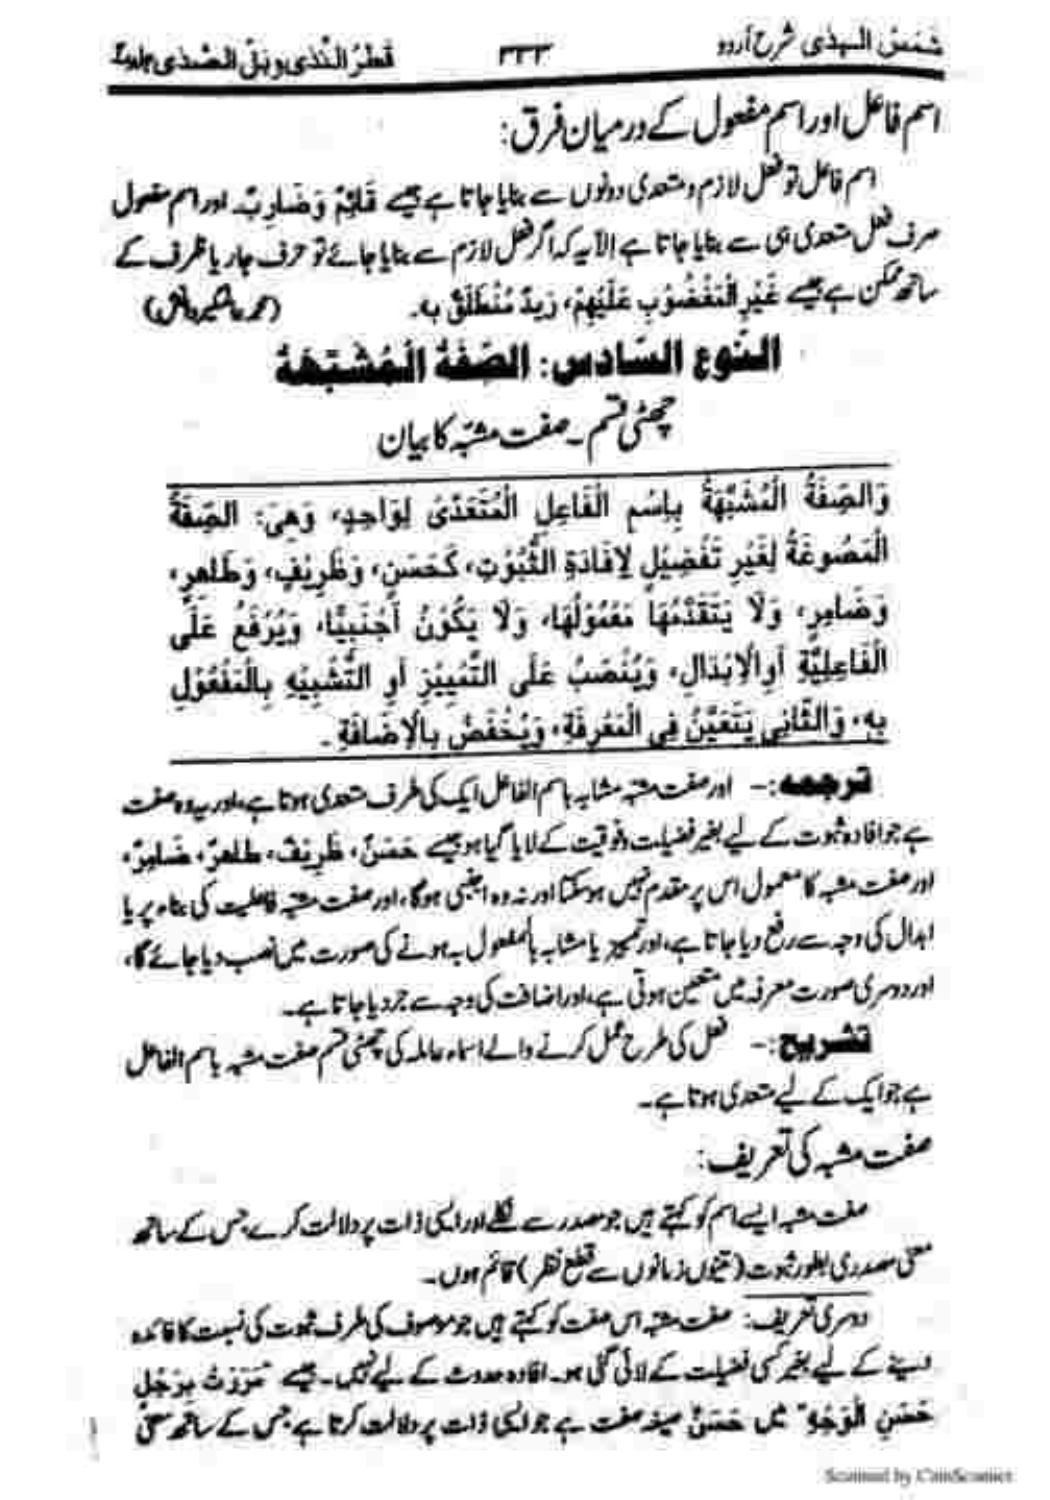 شمس الہدی شرح اردو ۳۳۳ قطرُ النّدٰی وبلّ الصّدٰی
اسم فاعل اور اسم مفعول کے درمیان فرق:
اسم فاعل تو فعل لازم و متعدی دونوں سے بنایا جاتا ہے جیسے قَائِمٌ وَضَارِبٌ۔ اور اسم مفعول
صرف فعل متعدی ہی سے بنایا جاتا ہے الّا یہ کہ اگر فعل لازم سے بنایا جائے تو حرف جار یا ظرف کے
ساتھ ممکن ہے جیسے غَیْرِ الْمَغْضُوْبِ عَلَیْهِمْ، زَیدٌ مُنْطَلَقٌ بِه۔
النّوع السّادس: الصّفَةُ الْمُشَبّهَةُ
چھٹی قسم۔ صفت مشبّہ کا بیان
وَالصِّفَةُ الْمُشَبَّهَةُ بِاسْمِ الْفَاعِلِ الْمُتَعَدِّیْ لِوَاحِدٍ، وَهِیَ: الصِّفَةُ
الْمَصُوغَةُ لِغَیْرِ تَفْضِیْلٍ لِاِفَادَةِ الثُّبُوْتِ، کَحَسَنٍ، وَظَرِیْفٍ، وَطَاهِرٍ،
وَضَامِرٍ، وَلَا یَتَقَدَّمُهَا مَعْمُوْلُهَا، وَلَا یَکُوْنُ أَجْنَبِیًّا، وَیُرْفَعُ عَلَی
الْفَاعِلِیَّةِ أوِالْاِبْدَالِ، وَیُنْصَبُ عَلَی التَّمْیِیْزِ أوِ التَّشْبِیْهِ بِالْمَفْعُوْلِ
بِهِ، وَالثَّانِی یَتَعَیَّنُ فِی الْمَعْرِفَةِ، وَیُخْفَضُ بِالْاِضَافَةِ۔
ترجمہ:– اور صفت مشبہ مشابہ باسم الفاعل ایک کی طرف متعدی ہوتا ہے، اور یہ وہ صفت
ہے جو افادہ ثبوت کے لیے بغیر فضیلت وفوقیت کے لایا گیا ہو جیسے حَسَنٌ، ظَرِیْفٌ، طَاهرٌ، ضَامِرٌ،
اور صفت مشبہ کا معمول اس پر مقدم نہیں ہو سکتا اور نہ وہ اجنبی ہوگا، اور صفت مشبہ فاعلیت کی بناء پر یا
ابدال کی وجہ سے رفع دیا جاتا ہے، اور تمییز یا مشابہ بالمفعول بہ ہونے کی صورت میں نصب دیا جائے گا،
اور دوسری صورت معرفہ میں متعین ہوتی ہے، اور اضافت کی وجہ سے جر دیا جاتا ہے۔
تشریح:– فعل کی طرح عمل کرنے والے اسماء عاملہ کی چھٹی قسم صفت مشبہ باسم الفاعل
ہے جو ایک کے لیے متعدی ہوتا ہے۔
صفت مشبہ کی تعریف:
صفت مشبہ ایسے اسم کو کہتے ہیں جو مصدر سے نکلے اور ایسی ذات پر دلالت کرے جس کے ساتھ
معنی مصدری بطور ثبوت (تینوں زمانوں سے قطع نظر) قائم ہوں۔
دوسری تعریف: صفت مشبہ اس صفت کو کہتے ہیں جو موصوف کی طرف ثبوت کی نسبت کا فائدہ
دینے کے لیے بغیر کسی فضیلت کے لائی گئی ہو۔ افادہ حدوث کے لیے نہیں۔ جیسے "مَرَرْتُ بِرَجُلٍ
حَسَنِ الْوَجْهِ" میں حَسَنٌ صیغہ صفت ہے جو ایسی ذات پر دلالت کرتا ہے جس کے ساتھ معنی
Scanned by CamScanner